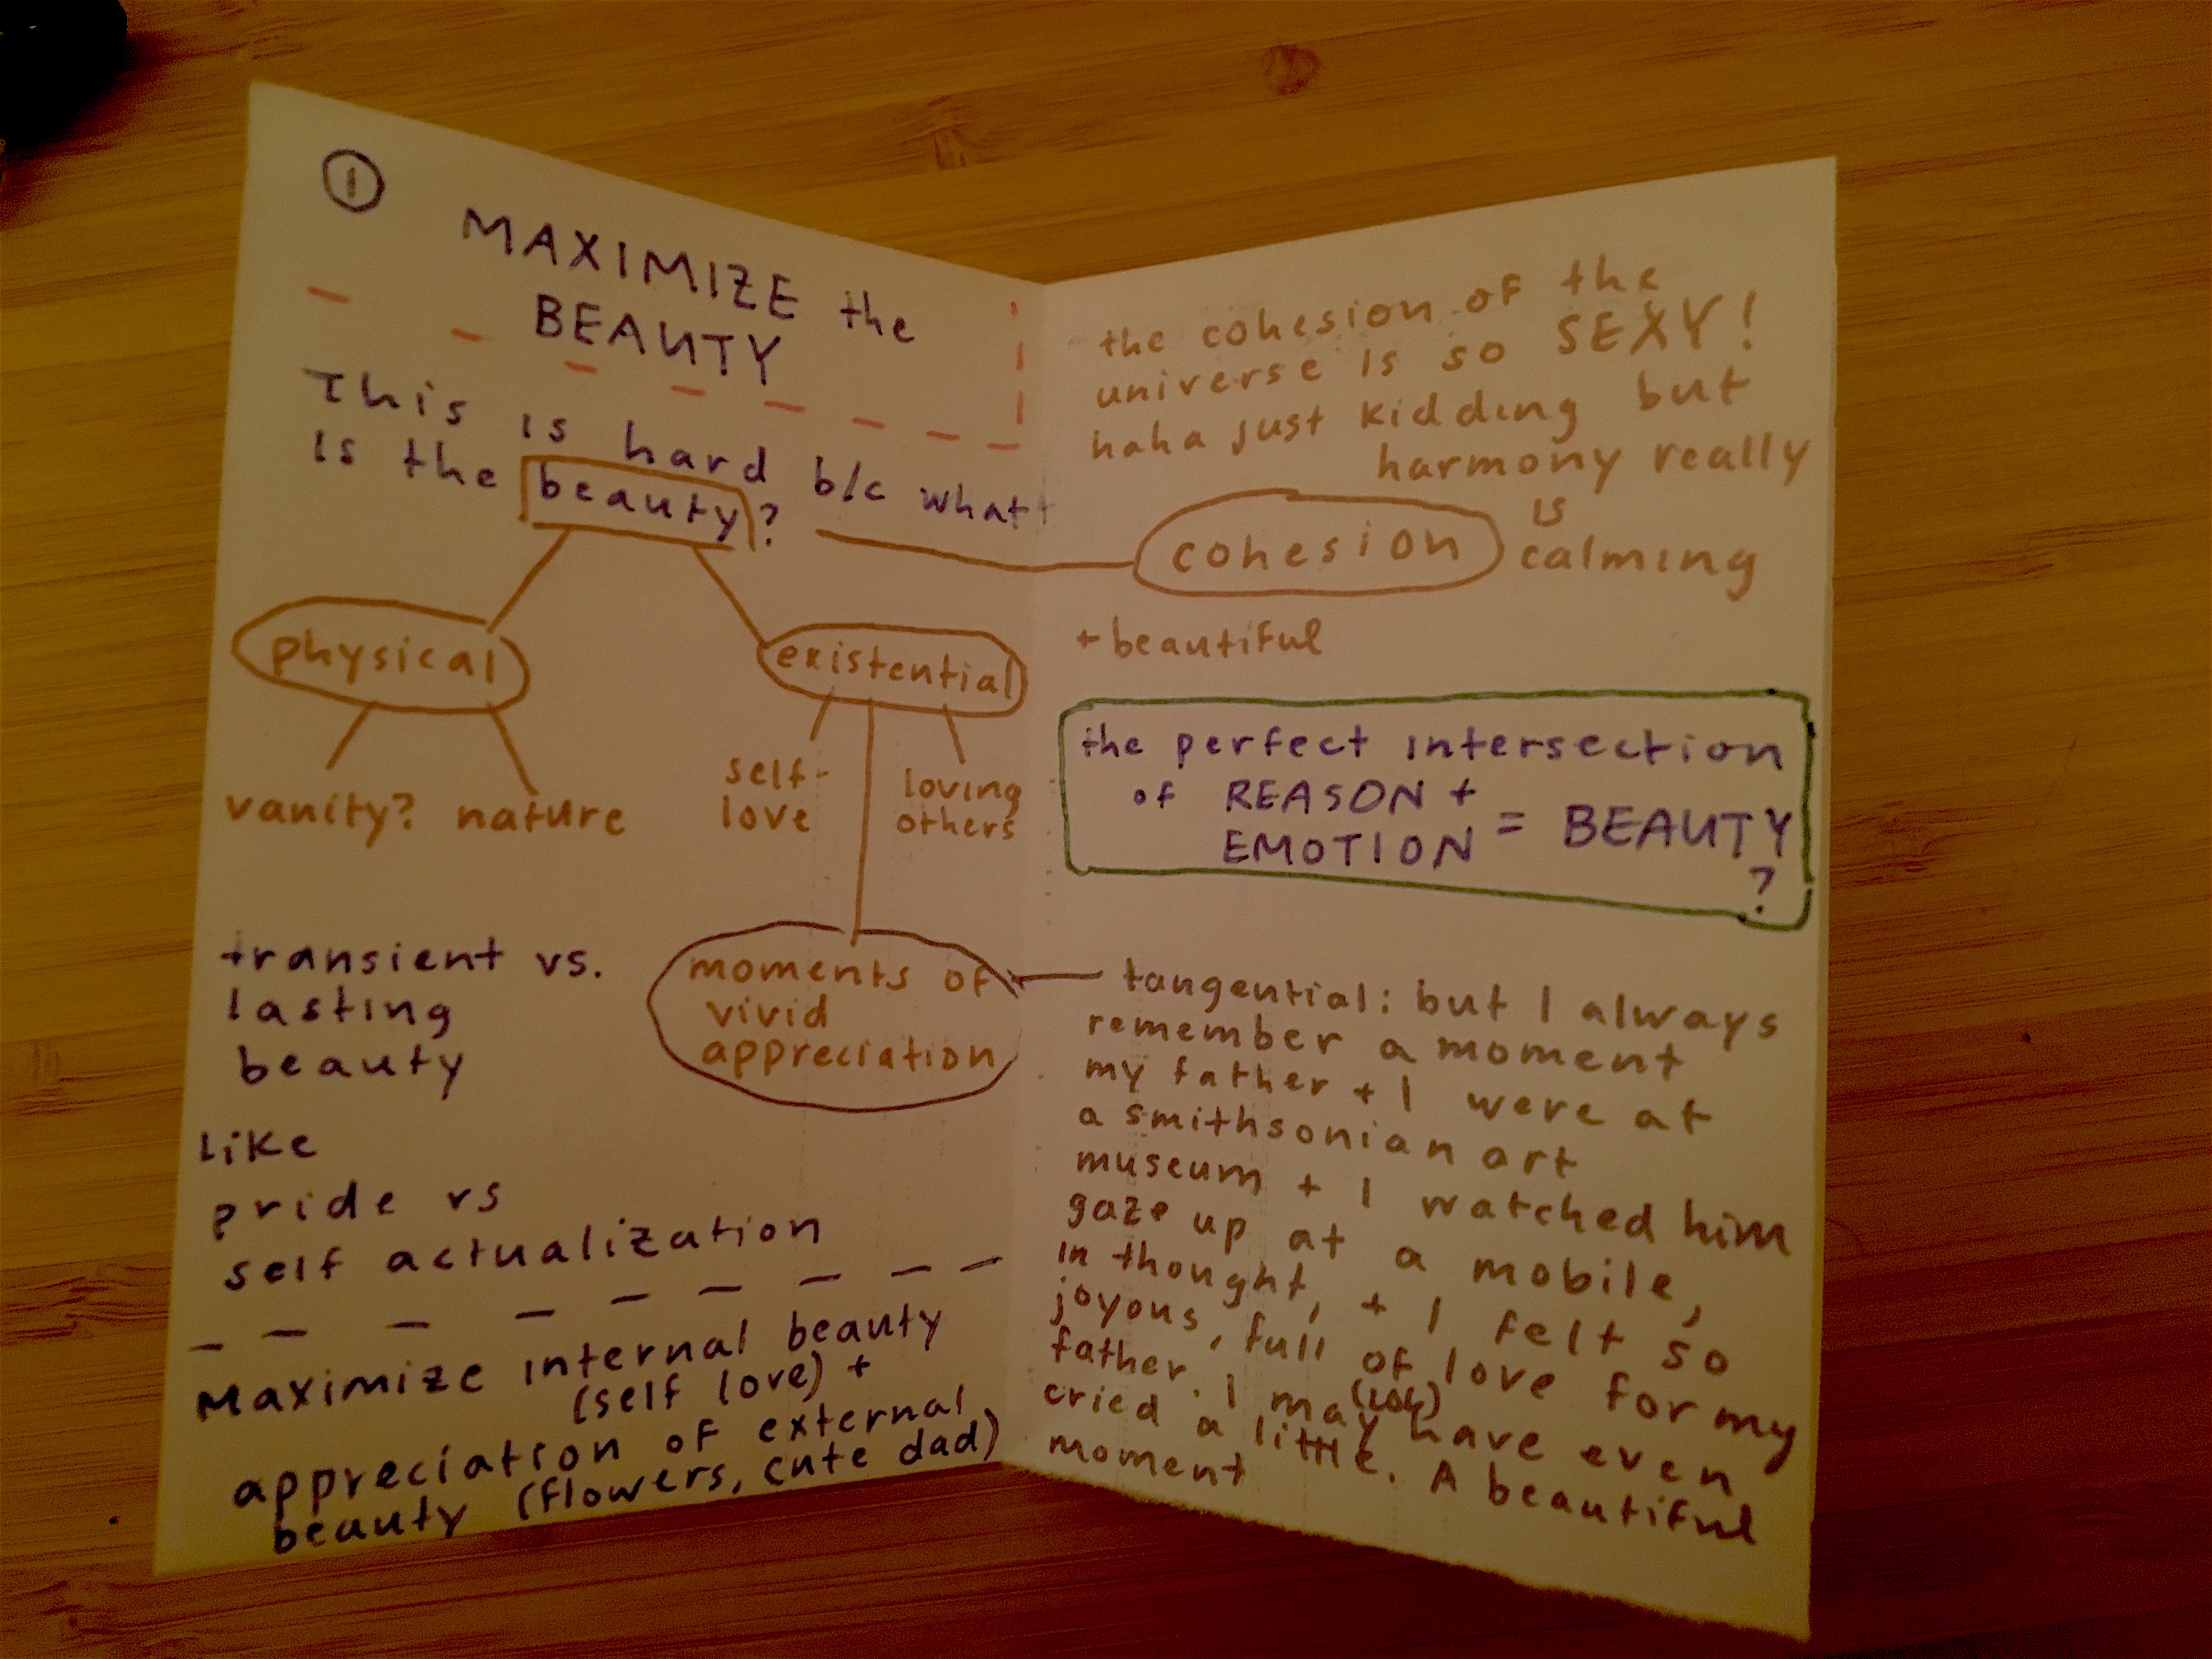 1
MAXIMIZE the
BEAUTY
This is hard b/c what
is the beauty?
physical
existential
vanity? nature
self-
love
loving
others
moments of
vivid
appreciation
transient vs.
lasting
beauty
like
pride vs
self actualization
Maximize internal beauty
(self love) +
appreciation of external
beauty (flowers, cute dad)
the cohesion of the
universe is so SEXY!
haha just kidding but
harmony really
is
cohesion calming
+ beautiful
the perfect intersection
of REASON +
EMOTION = BEAUTY
?
tangential: but I always
remember a moment
my father + I were at
a smithsonian art
museum + I watched him
gaze up at a mobile,
in thought, + I felt so
joyous, full of love for my
father. I may (lol) have even
cried a little. A beautiful
moment